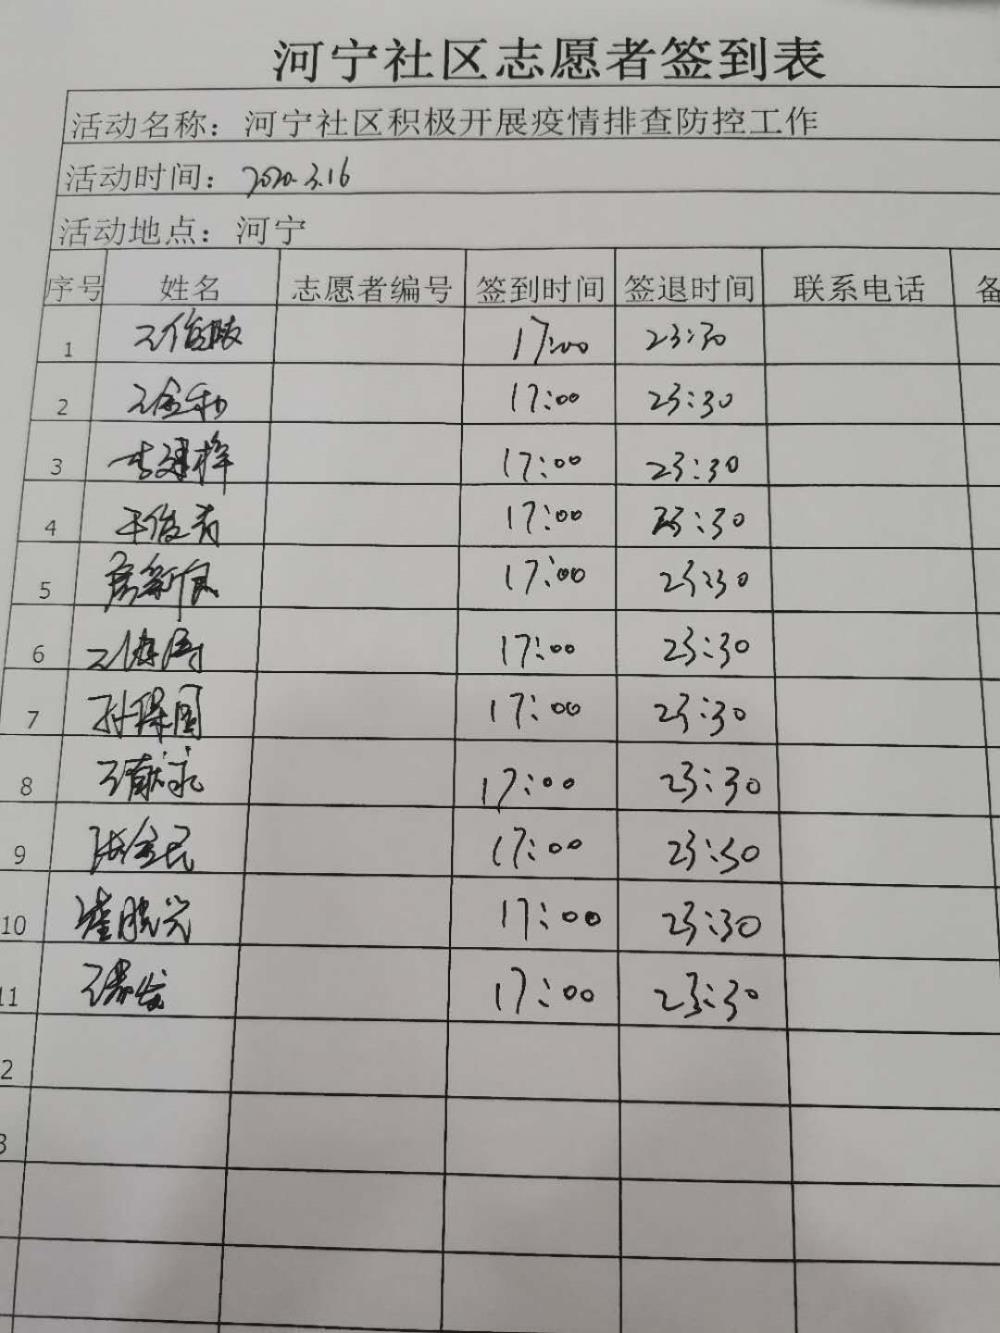 河宁社区志愿者签到表
活动名称：河宁社区积极开展疫情排查防控工作
活动时间：2020.3.16
活动地点：河宁
序号 姓名 志愿者编号 签到时间 签退时间 联系电话 备
1 17:00 23:30
2 17:00 23:30
3 17:00 23:30
4 王俊青 17:00 23:30
5 17:00 23:30
6 17:00 23:30
7 孙保国 17:00 23:30
8 17:00 23:30
9 张金民 17:00 23:30
10 崔胜兴 17:00 23:30
11 17:00 23:30
2
3